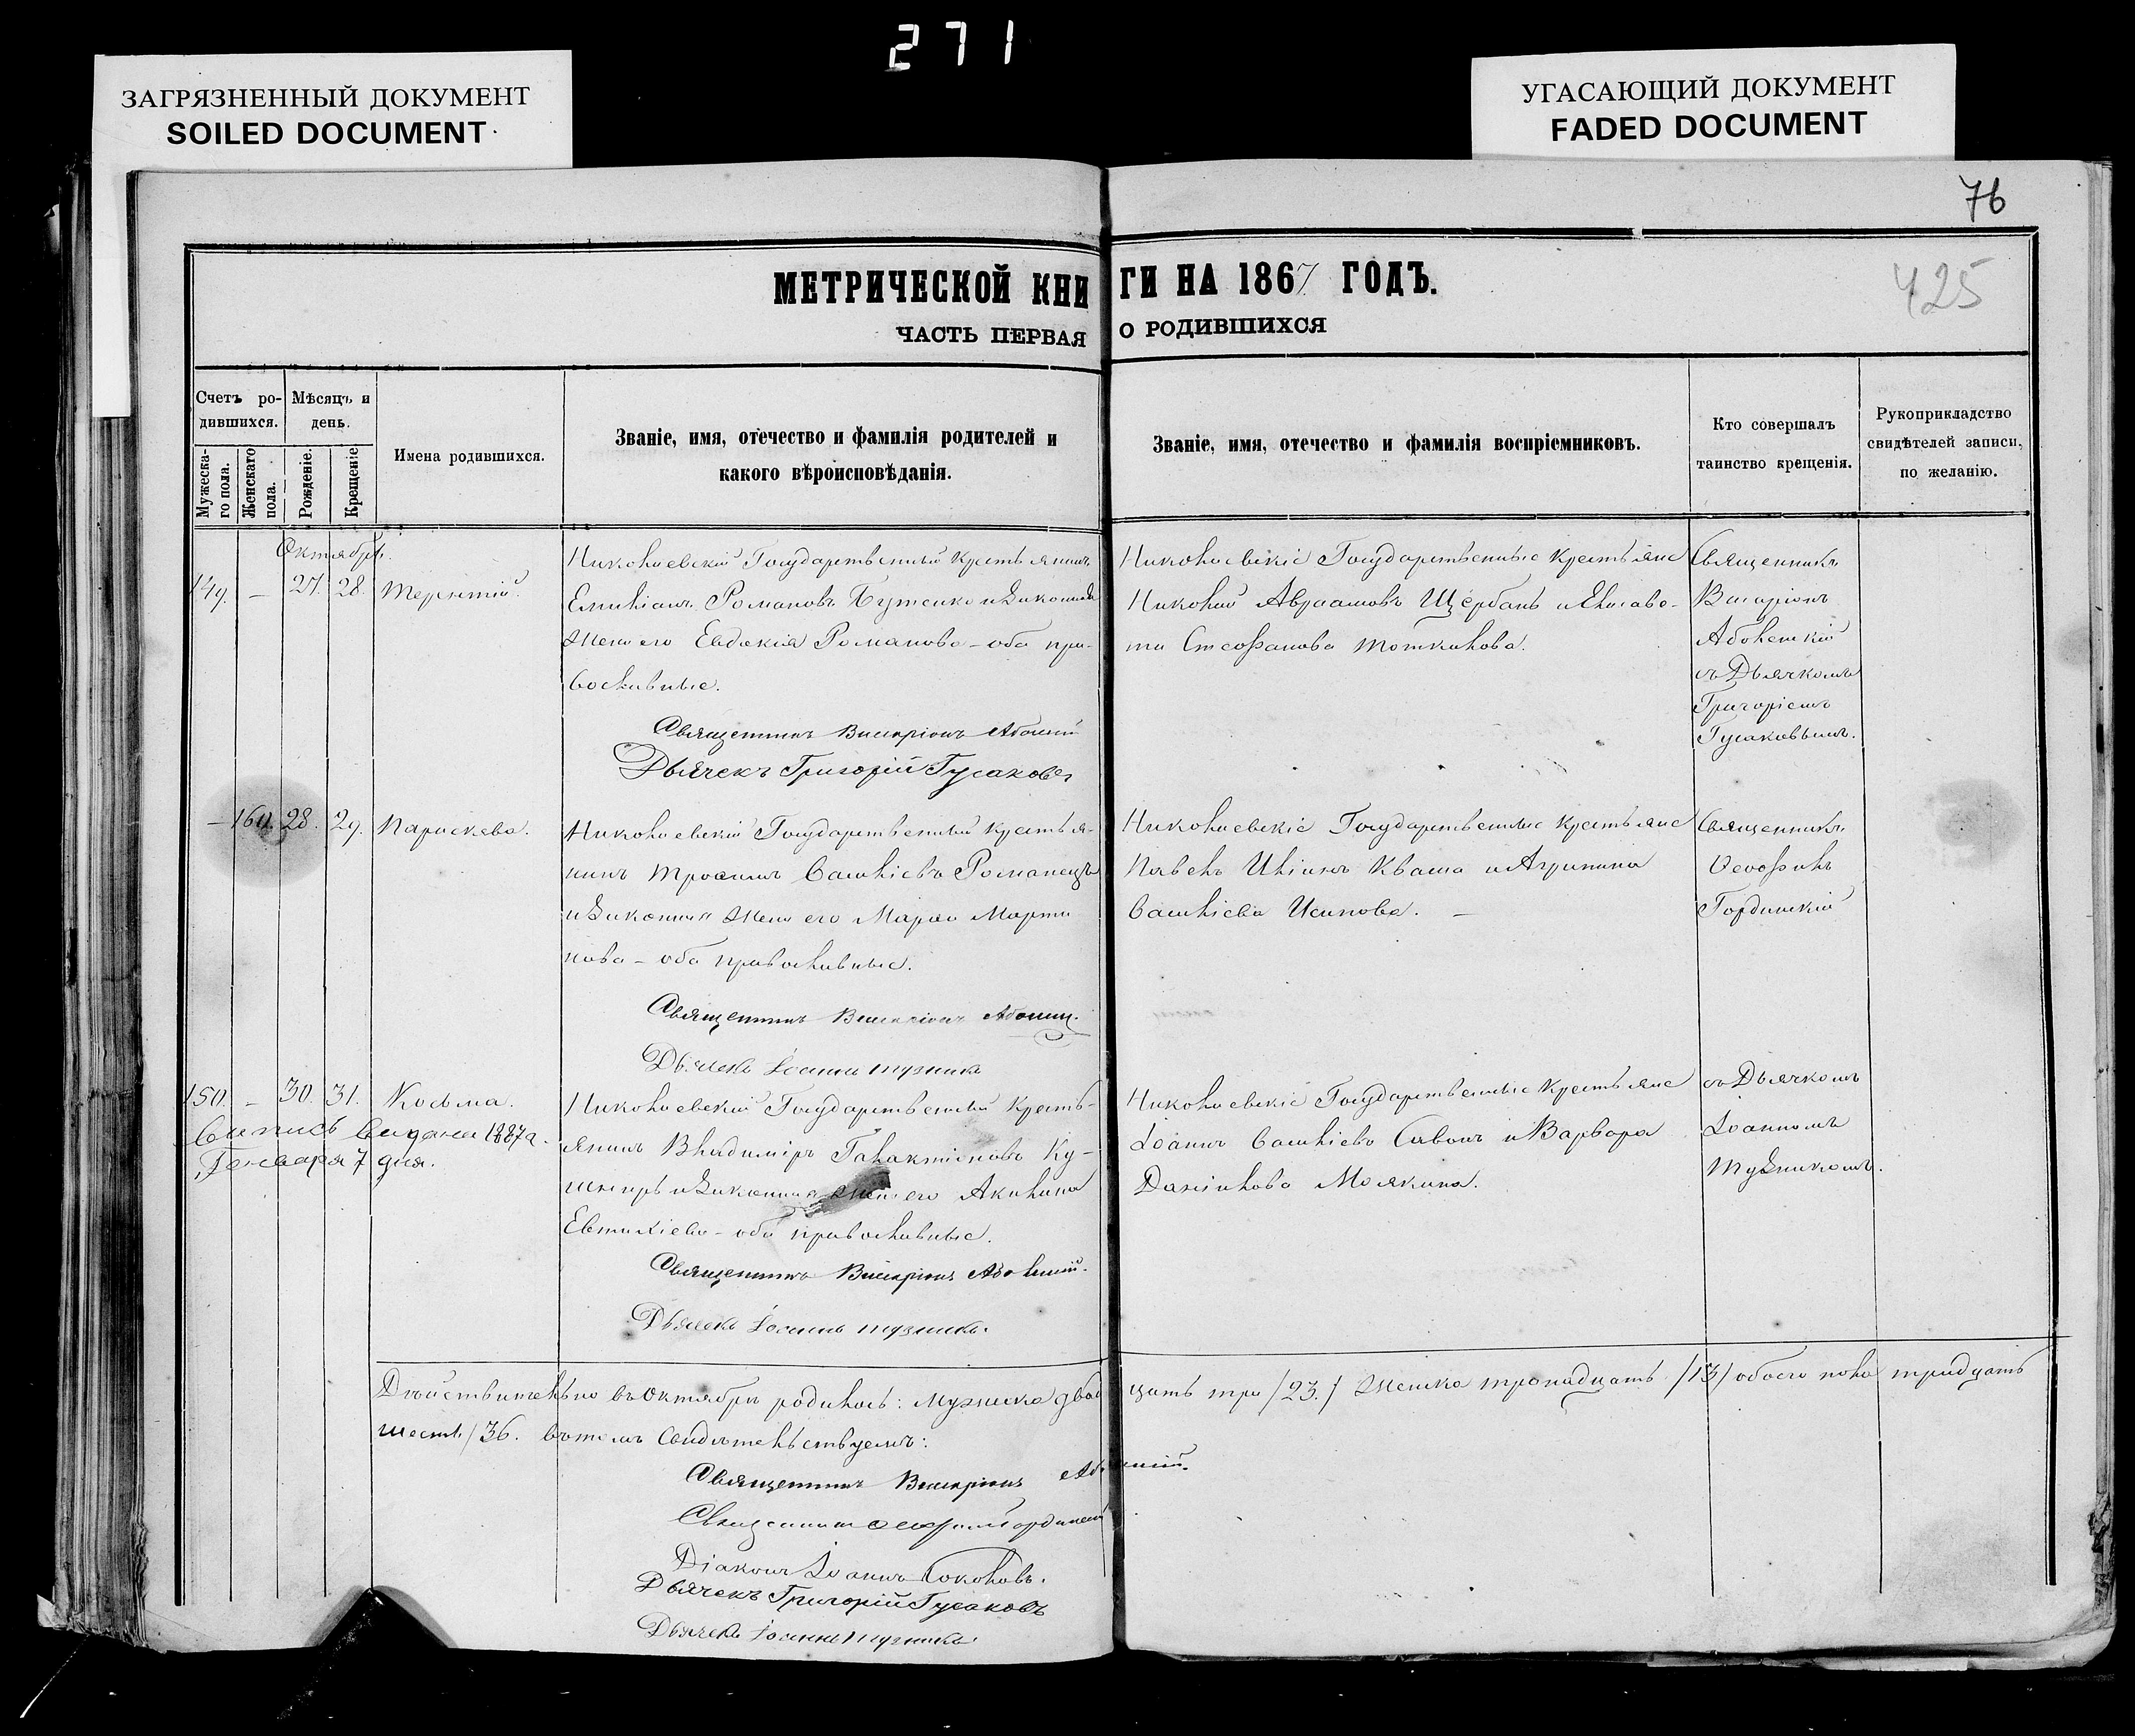 271
ЗАГРЯЗНЕННЫЙ ДОКУМЕНТ
SOILED DOCUMENT
УГАСАЮЩИЙ ДОКУМЕНТ
FADED DOCUMENT
76
425
МЕТРИЧЕСКОЙ КНИГИ НА 1867 ГОДЪ.
ЧАСТЬ ПЕРВАЯ О РОДИВШИХСЯ
Счетъ ро-
дившихся.
Мужеска-
го пола.
Женскаго
пола.
Мѣсяцъ и
день.
Рожденіе.
Крещеніе
Имена родившихся.
Званіе, имя, отечество и фамилія родителей и
какого вѣроисповѣданія.
Званіе, имя, отечество и фамилія воспріемниковъ.
Кто совершалъ
таинство крещенія.
Рукоприкладство
свидѣтелей записи,
по желанію.
Октябрь.
149. – 27. 28. Терентій.
Николаевскій Государственный крестьянинъ
Емиліанъ Романовъ Бутенко и законная
жена его Евдокія Романова – оба пра-
вославные.
Священникъ Виссаріонъ
Дьячекъ Григорій Гусаковъ
Николаевскіе Государственные крестьяне
Николай Авраамовъ Щербань и Елисаве-
та Стефанова
Священникъ
Виссаріонъ
съ Дьячкомъ
Григоріемъ
Гусаковымъ.
– 28. 29. Параскева.
Николаевскій Государственный крестья-
нинъ Трофимъ Василіевъ Романецъ
и законная жена его Марія Марти
нова – оба православные.
Священникъ Виссаріонъ
Дьячекъ Іоаннъ Тузникъ
Николаевскіе Государственные крестьяне
Павелъ Иліинъ Кваша и Агрипина
Василіева
Священникъ
Ѳеофилъ
Гординскій
150. – 30. 31. Косьма.
Выпись выдана 1887 г.
Генваря 7 дня.
Николаевскій Государственный кресть-
янинъ Владиміръ Галактіоновъ Ку-
шниръ и законная жена его Акилина
Евтихіева – оба православные.
Священникъ Виссаріонъ
Дьячекъ Іоаннъ Тузникъ.
Николаевскіе Государственные крестьяне
Іоаннъ Василіевъ и Варвара
Даніилова
съ Дьячкомъ
Іоанномъ
Тузникомъ.
Дѣйствительно въ Октябрѣ родилось: мужеска двадцать три /23./ женска тринадцать /13/ обоего пола тридцать
шесть /36. въ томъ свидѣтельствуемъ:
Священникъ Виссаріонъ
Священникъ Ѳеофилъ Гординскій
Діаконъ Іоаннъ Соколовъ.
Дьячекъ Григорій Гусаковъ
Дьячекъ Іоаннъ Тузникъ.